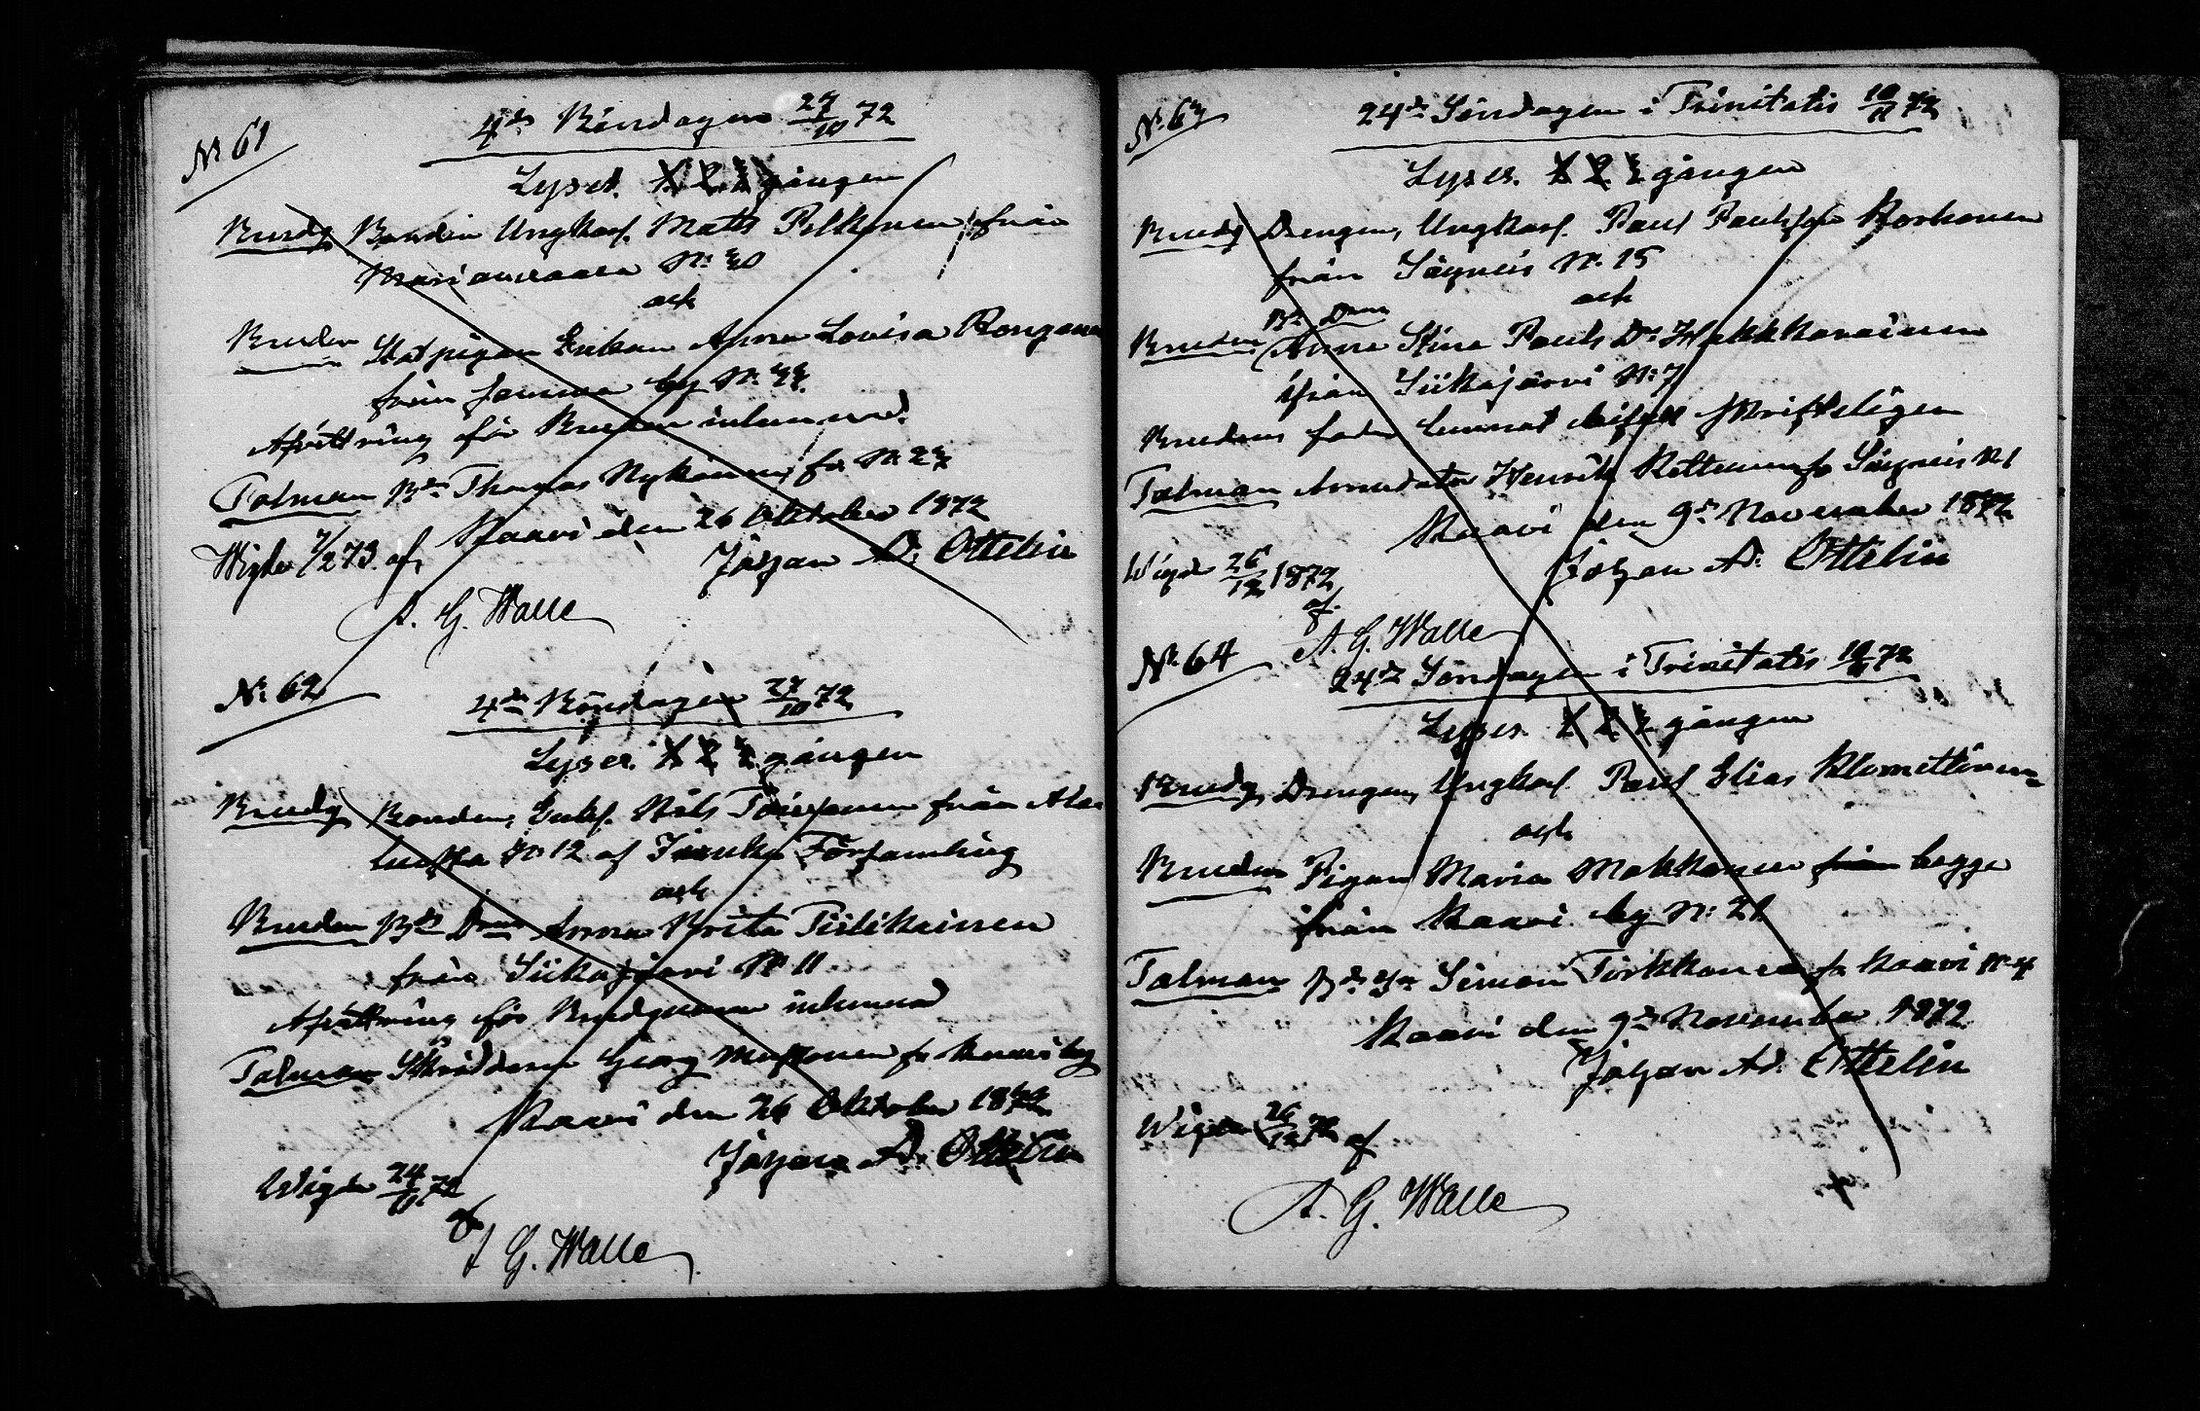 N: 61
4de Böndagen 27/10 72
Lyses. 1. 2. 3 gången
Brudg. Bonden Ungkarl. Matts Pelkonen från
Marianvaara N: 30
och
Bruden Enkan Anna Lovisa Rongonen
från by N: 33.
för Bruden inlemnad.
Talman Bdn Thomas Nykänen fr. N: 23
Kaavi den 26 Oktober 1872
Johan A. Ottelin
Wigde 7/2 73. af
A. G. Walle
N: 62
4de Böndagen 27/10 72
Lyses. 1 2 3 gången
Brudg. Bonden, Enkl. Nils från Ala
N: 12 af Juuka Församling
och
Bruden Bde Dron Anna Brita Tiilikainen
från Siikajärvi N: 11
för Brudgummen inlemnad
Talman Skräddaren Georg fr. Kaavi by
Kaavi den 26 Oktober 1872
Johan A. Ottelin
Wigde 24/11 72
af
A G. Walle
N: 63
24de Söndagen i Trinitatis 10/11 72
Lyses. 1 2 3 gången
Brudg. Drengen, Ungkarl. Paul Paulsson Korhonen
från Säyneis N: 15
och
Bde Dron
Bruden Anna Stina Pauls Dr Hakkarainen
ifrån Siikajärvi N: 7
Brudens fader lemnat bifall skriftligen
Talman Arrendator Henrik fr Säyneis N: 1
Kaavi den 9de November 1872
Johan A. Ottelin
Wigde 26/12 1872
af.
A. G. Walle
N: 64
24de Söndagen i Trinitatis 10/11 72
Lyses. 1 2 3 gången
Brudg. Drengen, Ungkarl. Paul Elias Klemettinen
och
Bruden Pigan Maria Makkonen från begge
från Kaavi by N: 21
Talman Bde Sn Simon fr Kaavi N: 4
Kaavi den 9de November 1872
Johan Ad. Ottelin
Wigde 26/12 72 af
A. G. Walle